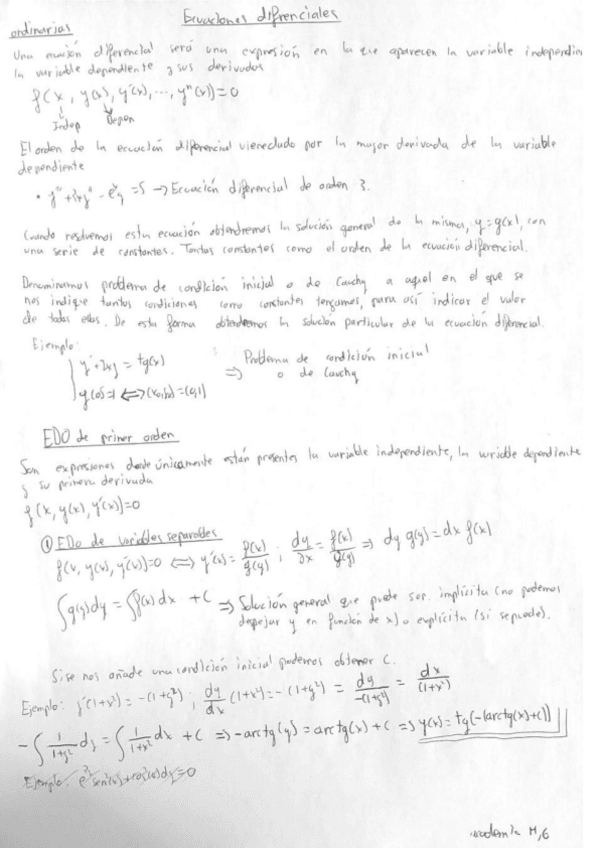 Ecuaciones difrenciales
ordinarias
Una ecuación diferencial será una expresión en la que aparecen la variable independien
la variable dependiente y sus derivadas
f(x, y(x), y'(x), ..., yⁿ(x))=0
Indep Depen
El orden de la ecuación diferencial viene dado por la mayor derivada de la variable
dependiente
=5 → Ecuación diferencial de orden
Cuando resolvemos esta ecuación obtendremos la solución general de la misma, y=g(x), con
una serie de constantes. Tantas constantes como el orden de la ecuación diferencial.
Denominamos problema de condición inicial o de Cauchy a aquel en el que se
nos indique tantas condiciones como constantes tengamos, para así indicar el valor
de todas ellas. De esta forma obtendremos la solución particular de la ecuación diferencial.
Ejemplo:
y'+2xy = tg(x) ⇒ Problema de condición inicial
y(0)=1 ⟺ (x₀,y₀)=(0,1) o de Cauchy
EDO de primer orden
Son expresiones donde únicamente están presentes la variable independiente, la variable dependiente
y su primera derivada
f(x, y(x), y'(x))=0
① EDO de variables separables
f(x, y(x), y'(x))=0 ⟺ y'(x) = f(x)/g(y) ; dy/dx = f(x)/g(y) ⇒ dy g(y) = dx f(x)
∫g(y)dy = ∫f(x)dx + C ⇒ Solución general que puede ser implícita (no podemos
despejar y en función de x) o explícita (sí se puede).
Si se nos añade una condición inicial podemos obtener C.
Ejemplo: y'(1+x²) = -(1+y²) ; dy/dx (1+x²) = -(1+y²) = dy/-(1+y²) = dx/(1+x²)
-∫ 1/1+y² dy = ∫ 1/1+x² dx + C ⇒ -arctg(y) = arctg(x) + C ⇒ y(x) = tg(-(arctg(x)+C))
Ejemplo: